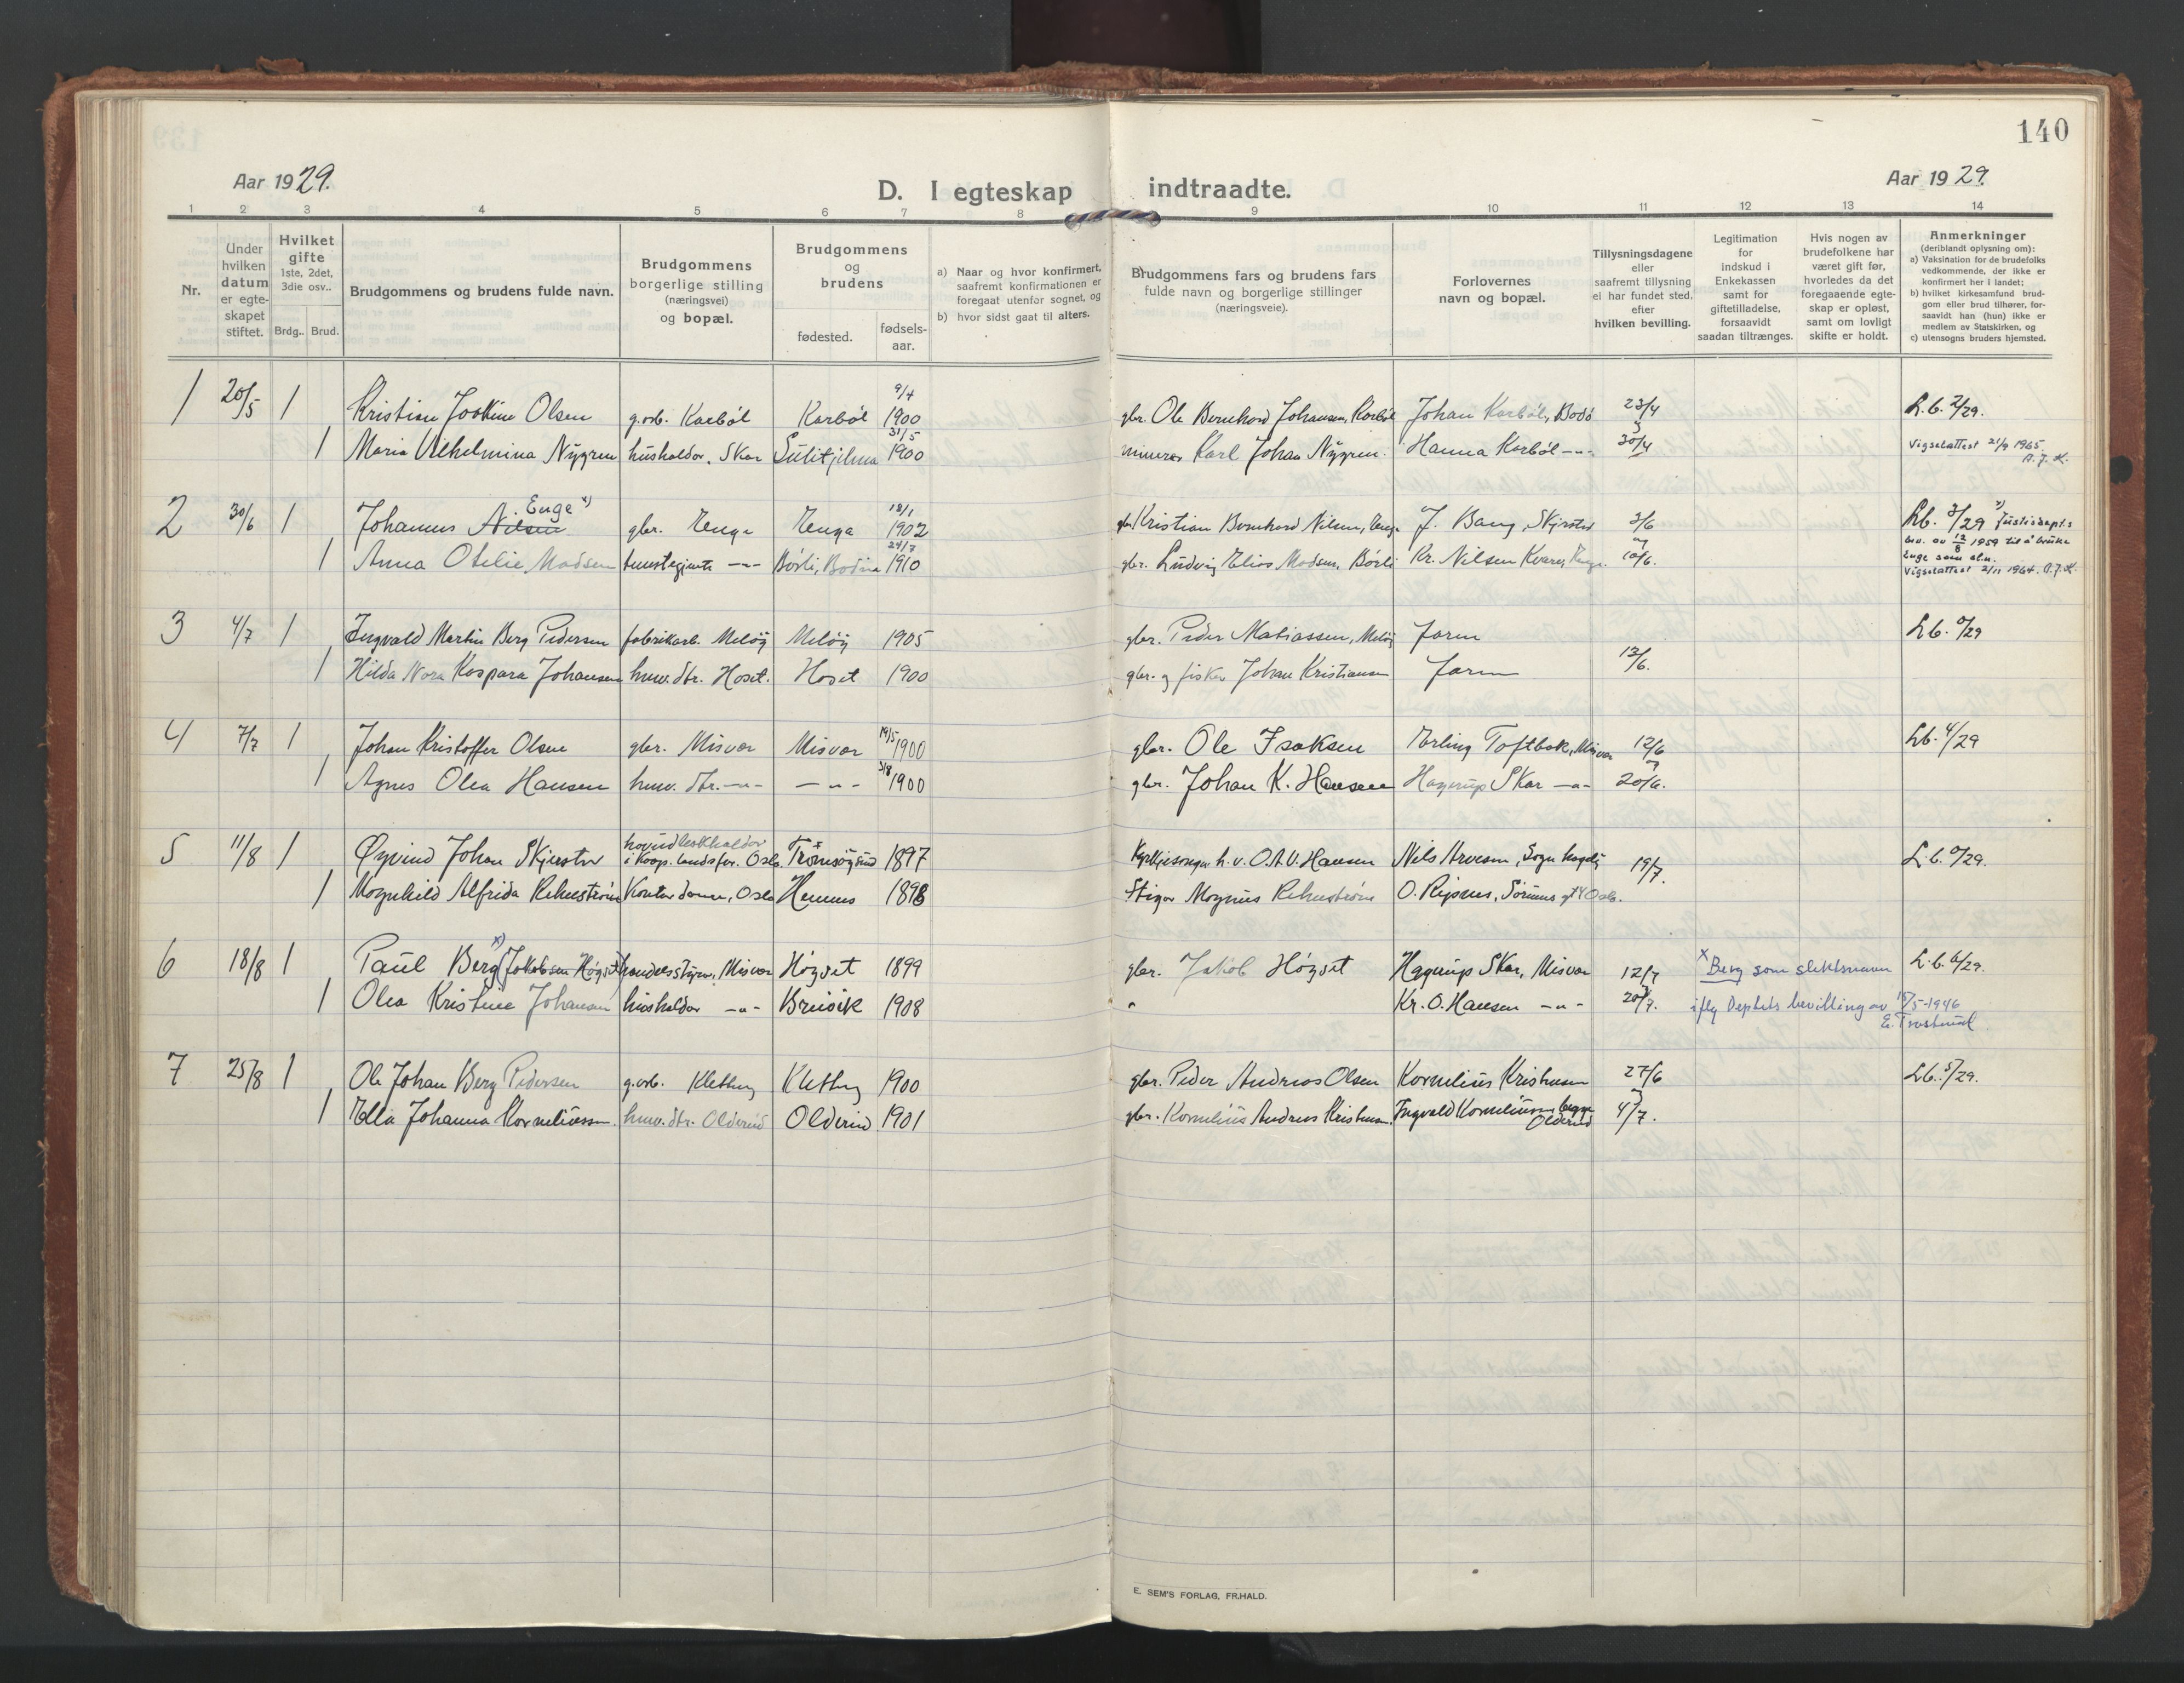 140
Aar 1929.
D. I egteskap indtraadte.
Aar 1929.
1 2 3 4 5 6 7 8 9 10 11 12 13 14
Nr.
Under hvilken datum er egte-skapet stiftet.
Hvilket gifte 1ste, 2det, 3die osv..
Brdg.. Brud.
Brudgommens og brudens fulde navn.
Brudgommens borgerlige stilling (næringsvei) og bopæl.
Brudgommens og brudens
fødested.
fødsels-aar.
a) Naar og hvor konfirmert, saafremt konfirmationen er foregaat utenfor sognet, og
b) hvor sidst gaat til alters.
Brudgommens fars og brudens fars fulde navn og borgerlige stillinger (næringsveie).
Forlovernes navn og bopæl.
Tillysningsdagene eller saafremt tillysning ei har fundet sted, efter hvilken bevilling.
Legitimation for indskud i Enkekassen samt for giftetilladelse, forsaavidt saadan tiltrænges.
Hvis nogen av brudefolkene har været gift før, hvorledes da det foregaaende egte-skap er opløst, samt om lovligt skifte er holdt.
Anmerkninger (deriblandt oplysning om):
a) Vaksination for de brudefolks vedkommende, der ikke er konfirmert her i landet;
b) hvilket kirkesamfund brud-gom eller brud tilhører, for-saavidt han (hun) ikke er medlem av Statskirken, og
c) utensogns bruders hjemsted.
1 20/5 1 Kristian Joakim Olsen g.arb. Karbøl Karbøl 9/4 1900 gbr. Ole Bernhard Johansen, Karbøl Johan Karbøl, Bodø 23/4 L.b. 2/29.
1 Maria Vilhelmina Nygren husholder. Skar Sulitjelma 31/5 1900 minerer Karl Johan Nygren. Hanna Karbøl -"- 30/4 Vigselattest 21/9 1965
2 30/6 1 Johannes Nilsen Enge x) gbr. Enga Enga 18/1 1902 gbr. Kristian Bernhard Nilsen, Enga J. Bang, Skjerstad 3/6 Lb. 3/29 x) Justisdept.s
bev. av 12/8 1959 til å bruke
Enge som sln.
1 Anna Otelie Madsen tenestegjente -"- Børli, Bodin 24/7 1910 gbr. Ludvig Elias Madsen, Børli Kr. Nilsen 10/6.
Vigselattest 2/11 1964.
3 4/7 1 Ingvald Martin Berg Pedersen fabrikarb. Meløy Meløy 1905 gbr. Peder Matiassen, Meløy Jarm Lb. 0/29
1 Hilda Nora Kaspara Johansen husv. dtr. Hoset. Hoset 1900 gbr. og fisker Johan Kristiansen Jarm 13/6.
4 7/7 1 Johan Kristoffer Olsen gbr. Misvær Misvær 19/5 1900 gbr. Ole Isaksen Erling Toftbak, Misvær 12/6 Lb. 4/29
1 Agnes Olea Hansen husv. dtr. -"- -"- 3/8 1900 gbr. Johan K. Hansen Hagerup Skar -"- 20/6.
5 11/8 1 Øyvind Johan Skjerstad
i Koop. landsfor. Oslo. Tromsøysund 1897 O.A.V. Hansen Nils Arvesen, 19/7. L.b. 0/29.
1 Magnhild Alfrida Rehnstrøm Kontordame, Oslo Hemnes 1898 Stiger Magnus Rehnstrøm
6 18/8 1 Paul Berg x) (Jakobsen Høgset) handelsstyrer, Misvær Høgset 1899 gbr. Jakob Høgset Hagerup Skar, Misvær 12/7 x Berg som slektsnavn L.b. 6/29.
1 Olea Kristine Johansen husholder -"- Breivik 1908 " Kr. O. Hansen -"- 20/7. iflg Deptets bevilling av 15/5-1946
7 25/8 1 Ole Johan Berg Pedersen g.arb. Kletteng Kletteng 1900 gbr. Peder Andreas Olsen Kornelius Kristensen 27/6 Lb. 5/29.
1 Ella Johanna Korneliussen. husv. dtr. Oldereid Oldereid 1901 gbr. Kornelius Andreas Kristensen. Ingvald Korneliussen begge Oldereid 4/7.
E. SEM'S FORLAG, FR.HALD.